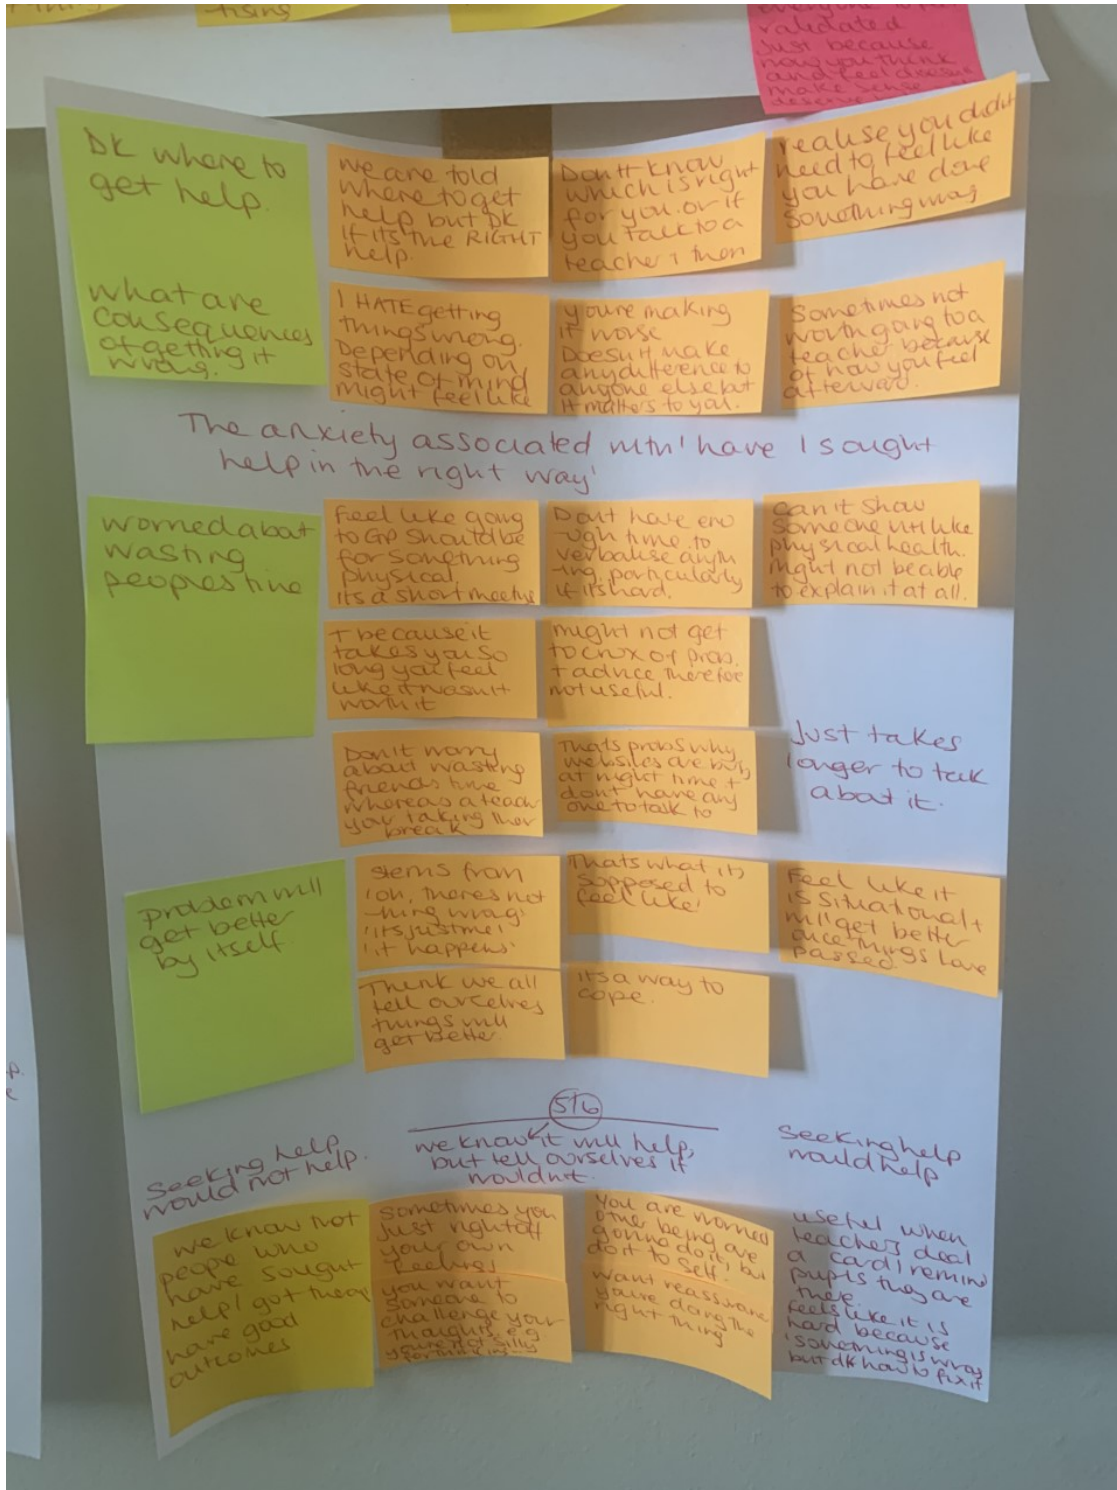 validated
just because
how you think
and feel
make sense
DK where to
get help.
what are
consequences
of getting it
wrong.
we are told
where to get
help but DK
if its the RIGHT
help.
Don't know
which is right
for you. or if
you talk to a
teacher + then
realise you didn't
need to feel like
you have done
something wrong
I HATE getting
things wrong.
Depending on
state of mind
might feel like
youre making
it worse
Doesn't make
any difference to
anyone else but
it matters to you.
Sometimes not
worth going to a
teacher because
of how you feel
afterward.
The anxiety associated with 'have I sought
help in the right way'
worried about
wasting
peoples time
Feel like going
to GP should be
for something
physical
its a short meeting
Dont have eno
ugh time to
verbalise anyth
ing, particularly
if its hard.
can't show
someone unlike
physical health.
Might not be able
to explain it at all.
+ because it
takes you so
long you feel
like it wasn't
worth it
might not get
to crux of prob.
+ advice therefore
not useful.
Don't worry
about wasting
friends time
whereas a teach
your taking their
break
Thats probs why
websites are busy
at night time +
dont have any
one to talk to
Just takes
longer to talk
about it.
problem will
get better
by itself.
stems from
'oh, theres not
hing wrong'
'its just me'
'it happens'
Thats what it's
supposed to
feel like'
Feel like it
is situational +
will get better
once things have
passed.
Think we all
tell ourselves
things will
get better.
its a way to
cope.
5/6
Seeking help
would not help.
we know it will help,
but tell ourselves it
wouldn't.
Seeking help
would help
we know not
people who
have sought
help / got them
have good
outcomes
Sometimes you
just right off
your own
feelings
you want
someone to
challenge your
thoughts e.g.
youre not silly
for thinking
You are worried
other being are
gonna do it, but
do it to self.
want reassurance
you're doing the
right thing
useful when
teachers deal
a card / remind
pupils they are
there.
feels like it is
hard because
'something is wrong
but dk how to fix it